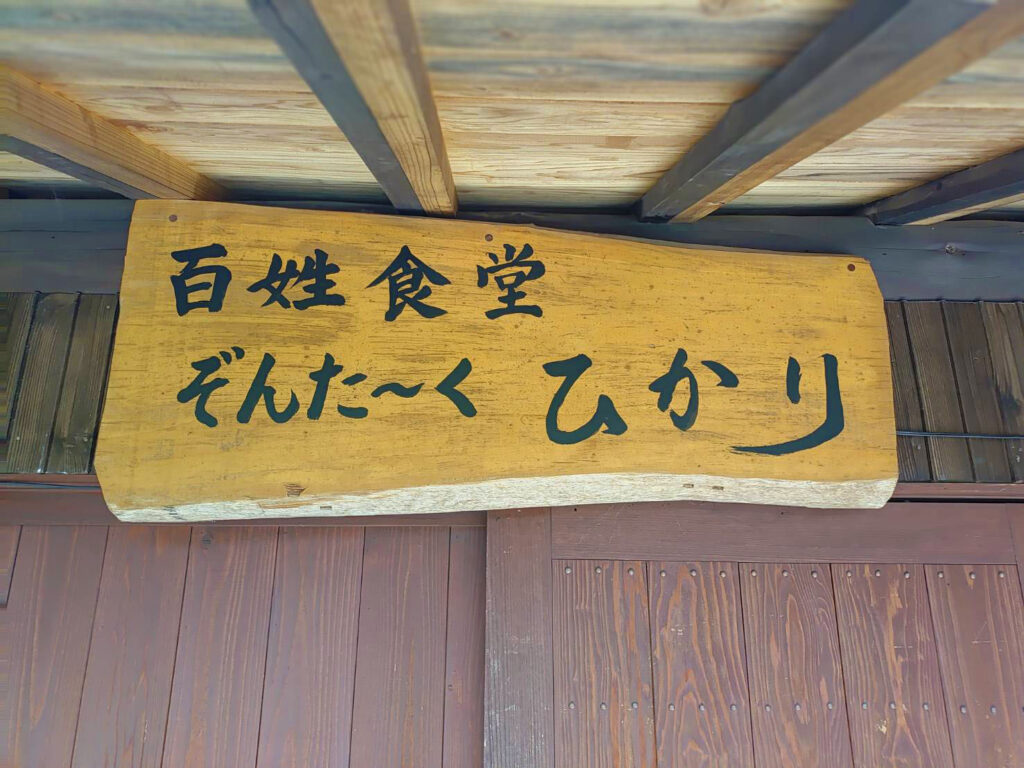 百姓食堂
ぞんた〜く ひかり